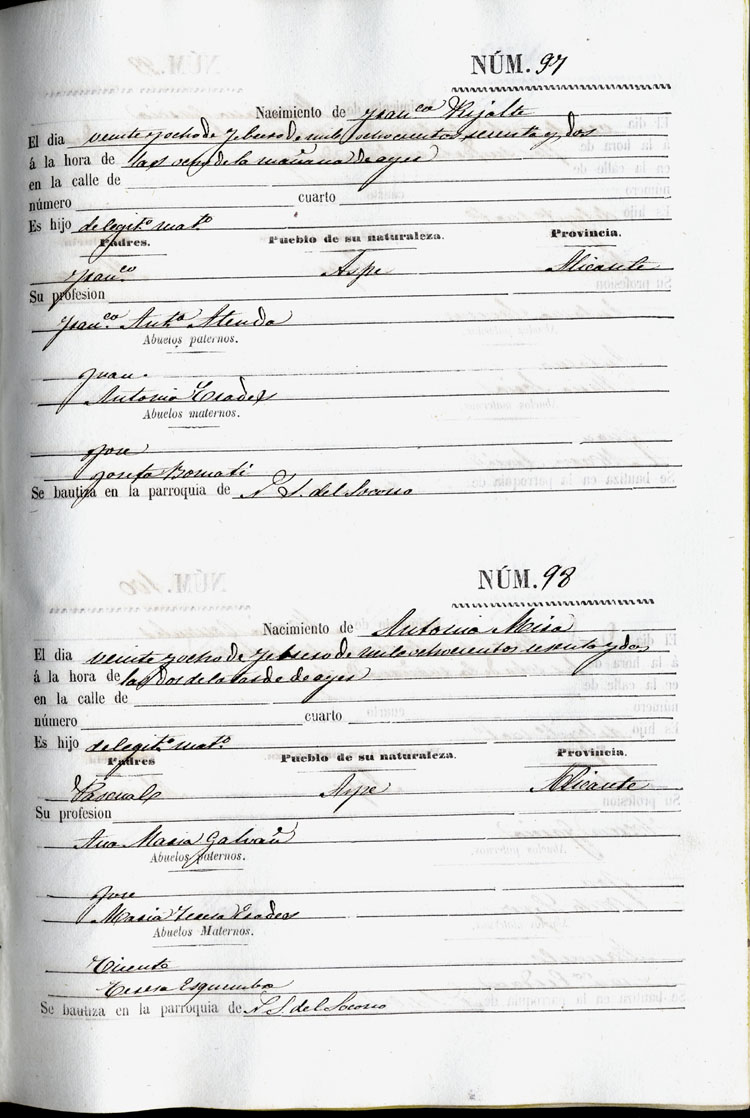 NÚM. 97
Nacimiento de Fran.co Rijalte
El dia veinte y ocho de Febrero de mil ochocientos sesenta y dos
á la hora de las once de la mañana de ayer
en la calle de
número cuarto
Es hijo de legit.o mat.o
Padres. Pueblo de su naturaleza. Provincia.
Fran.co Aspe Alicante
Su profesion
Fran.ca Ant.a
Abuelos paternos.
Juan.
Antonia Prades
Abuelos maternos.
Jose
Josefa Bornati
Se bautiza en la parroquia de N. S. del Socorro
NÚM. 98
Nacimiento de Antonia Mira
El dia veinte y ocho de Febrero de mil ochocientos sesenta y dos
á la hora de las dos de la tarde de ayer
en la calle de
número cuarto
Es hijo de legit.o mat.o
Padres Pueblo de su naturaleza. Provincia.
Pascual Aspe Alicante
Su profesion
Ana Maria Galvañ
Abuelos paternos.
Jose
Maria Teresa Prades
Abuelos Maternos.
Vicente
Teresa Esquembre
Se bautiza en la parroquia de N. S. del Socorro